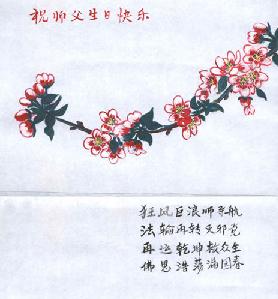 祝师父生日快乐
狂风巨浪师导航
法輪再转灭邪党
再造乾坤救众生
佛恩浩荡满园春